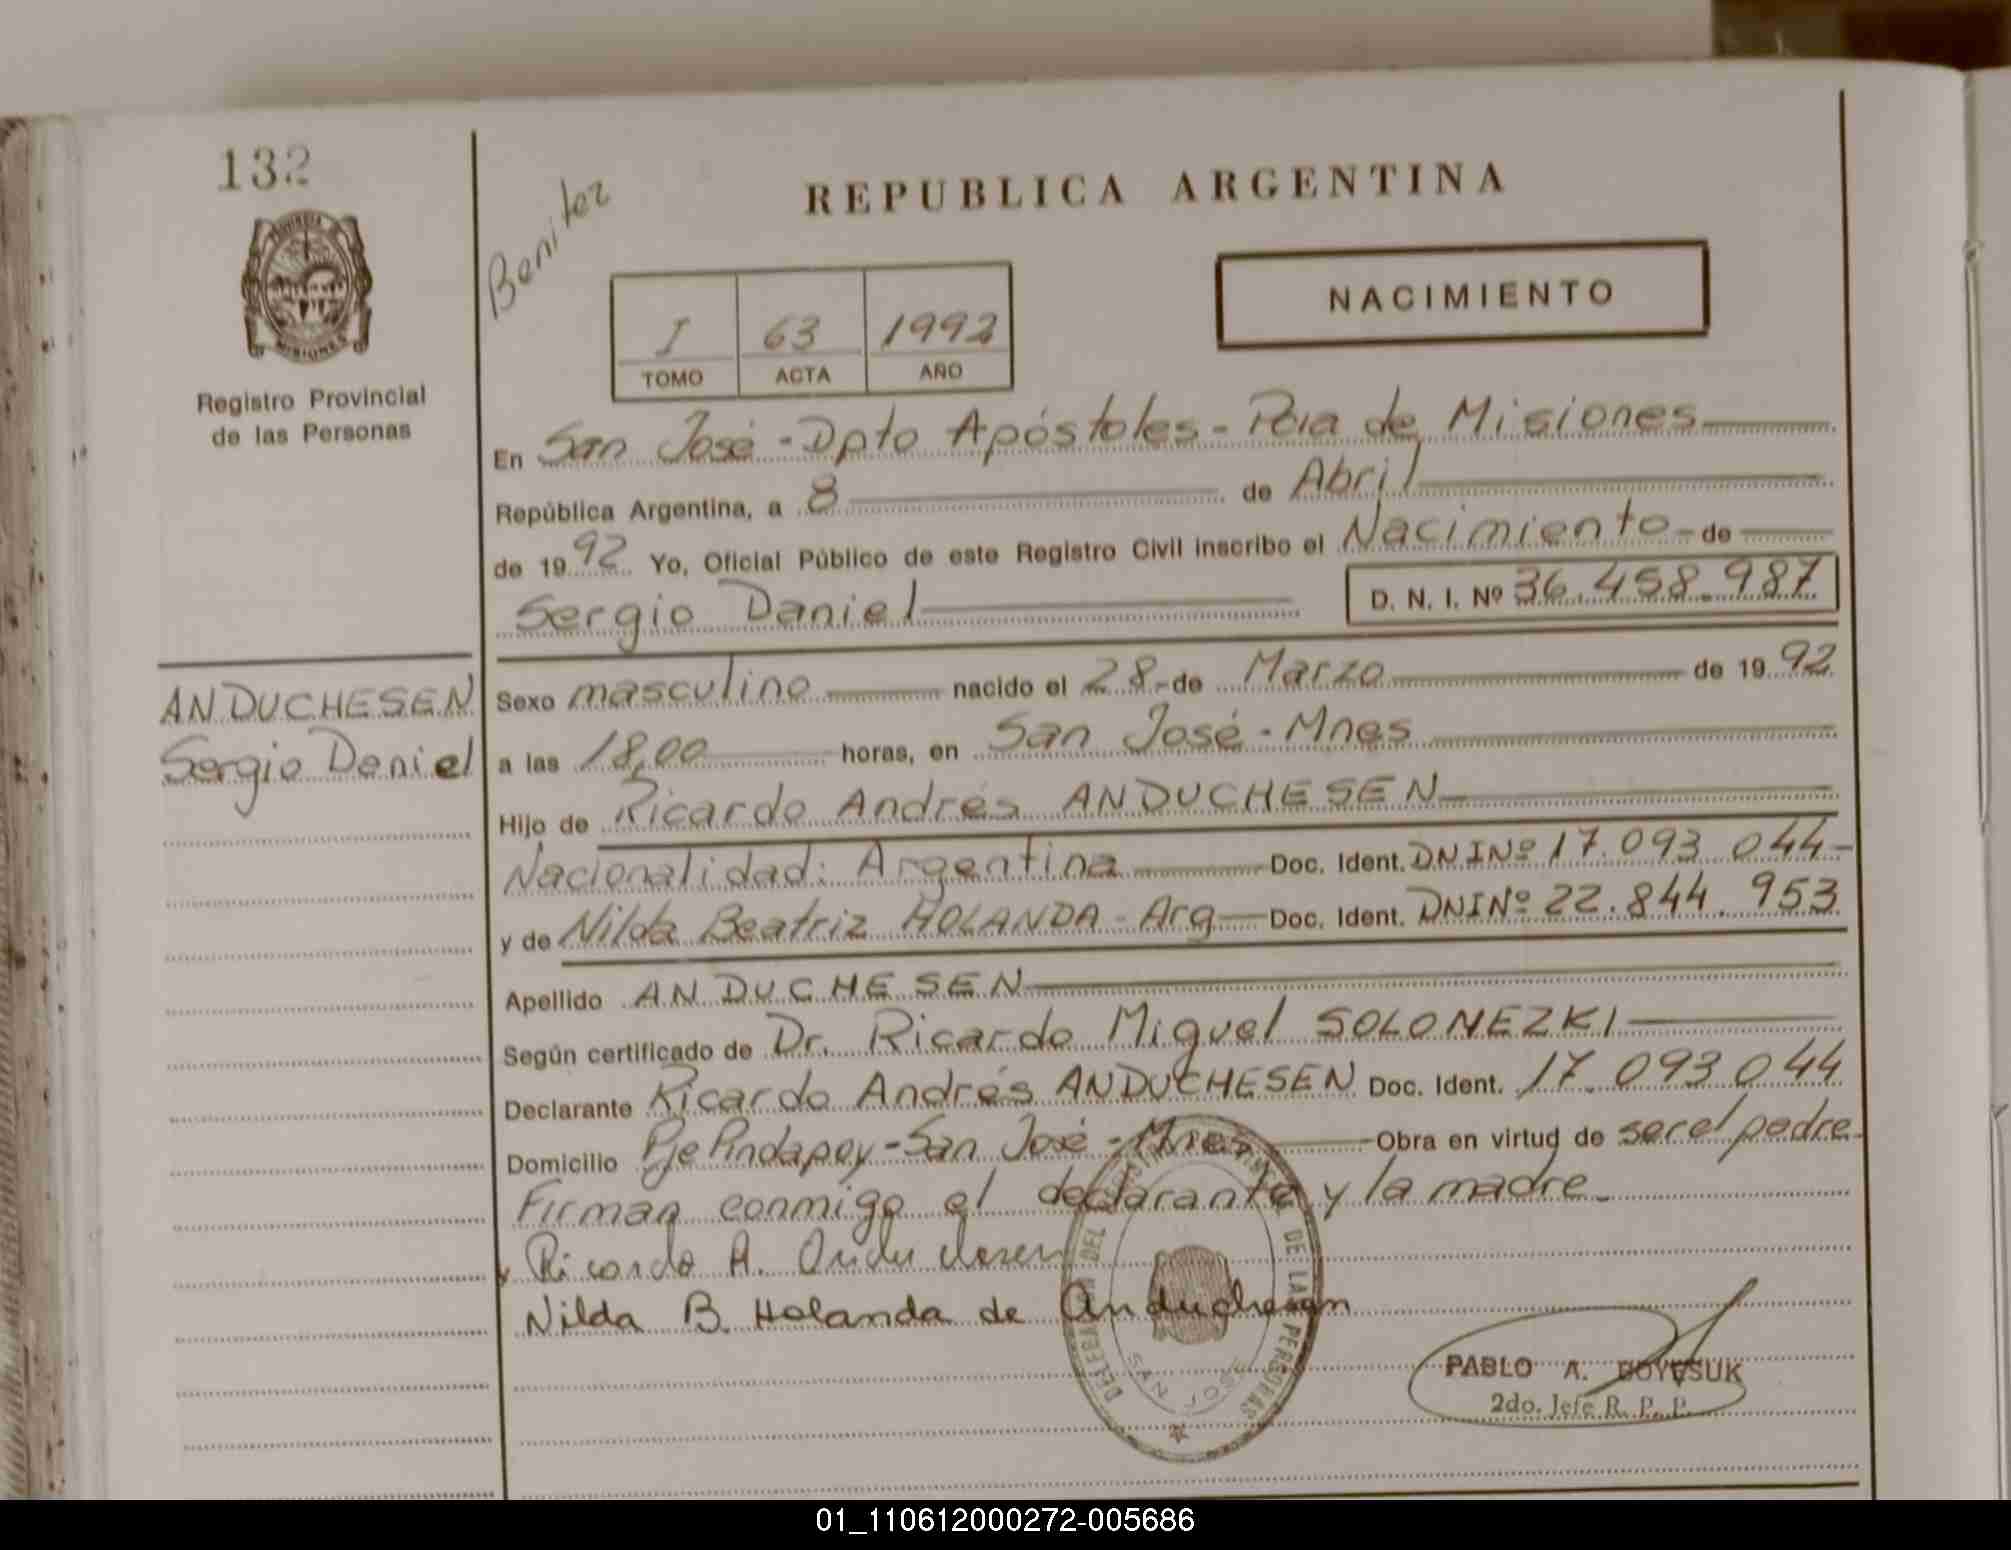 132
Registro Provincial
de las Personas
Benitez
REPUBLICA ARGENTINA
NACIMIENTO
I 63 1992
TOMO ACTA AÑO
En San José - Dpto Apóstoles - Pcia de Misiones
República Argentina, a 8 de Abril
de 1992 Yo, Oficial Público de este Registro Civil inscribo el Nacimiento - de
Sergio Daniel D. N. I. Nº 36.458.987
ANDUCHESEN
Sergio Daniel
Sexo masculino nacido el 28 - de Marzo de 1992
a las 18,00 horas, en San José - Mnes
Hijo de Ricardo Andrés ANDUCHESEN
Nacionalidad: Argentina Doc. Ident. DNI Nº 17.093.044 -
y de Nilda Beatriz HOLANDA - Arg Doc. Ident. DNI Nº 22.844.953
Apellido ANDUCHESEN
Según certificado de Dr. Ricardo Miguel SOLONEZKI
Declarante Ricardo Andrés ANDUCHESEN Doc. Ident. 17.093.044
Domicilio Pje Pindapoy - San José - Mnes Obra en virtud de ser el padre
Firman conmigo el declarante y la madre
Ricardo A.
Nilda B. Holanda de Anduchesen
DEL DE LAS PERSONAS
SAN JOSE
PABLO A. BOYESUK
2do. Jefe R. P. P.
01_110612000272-005686